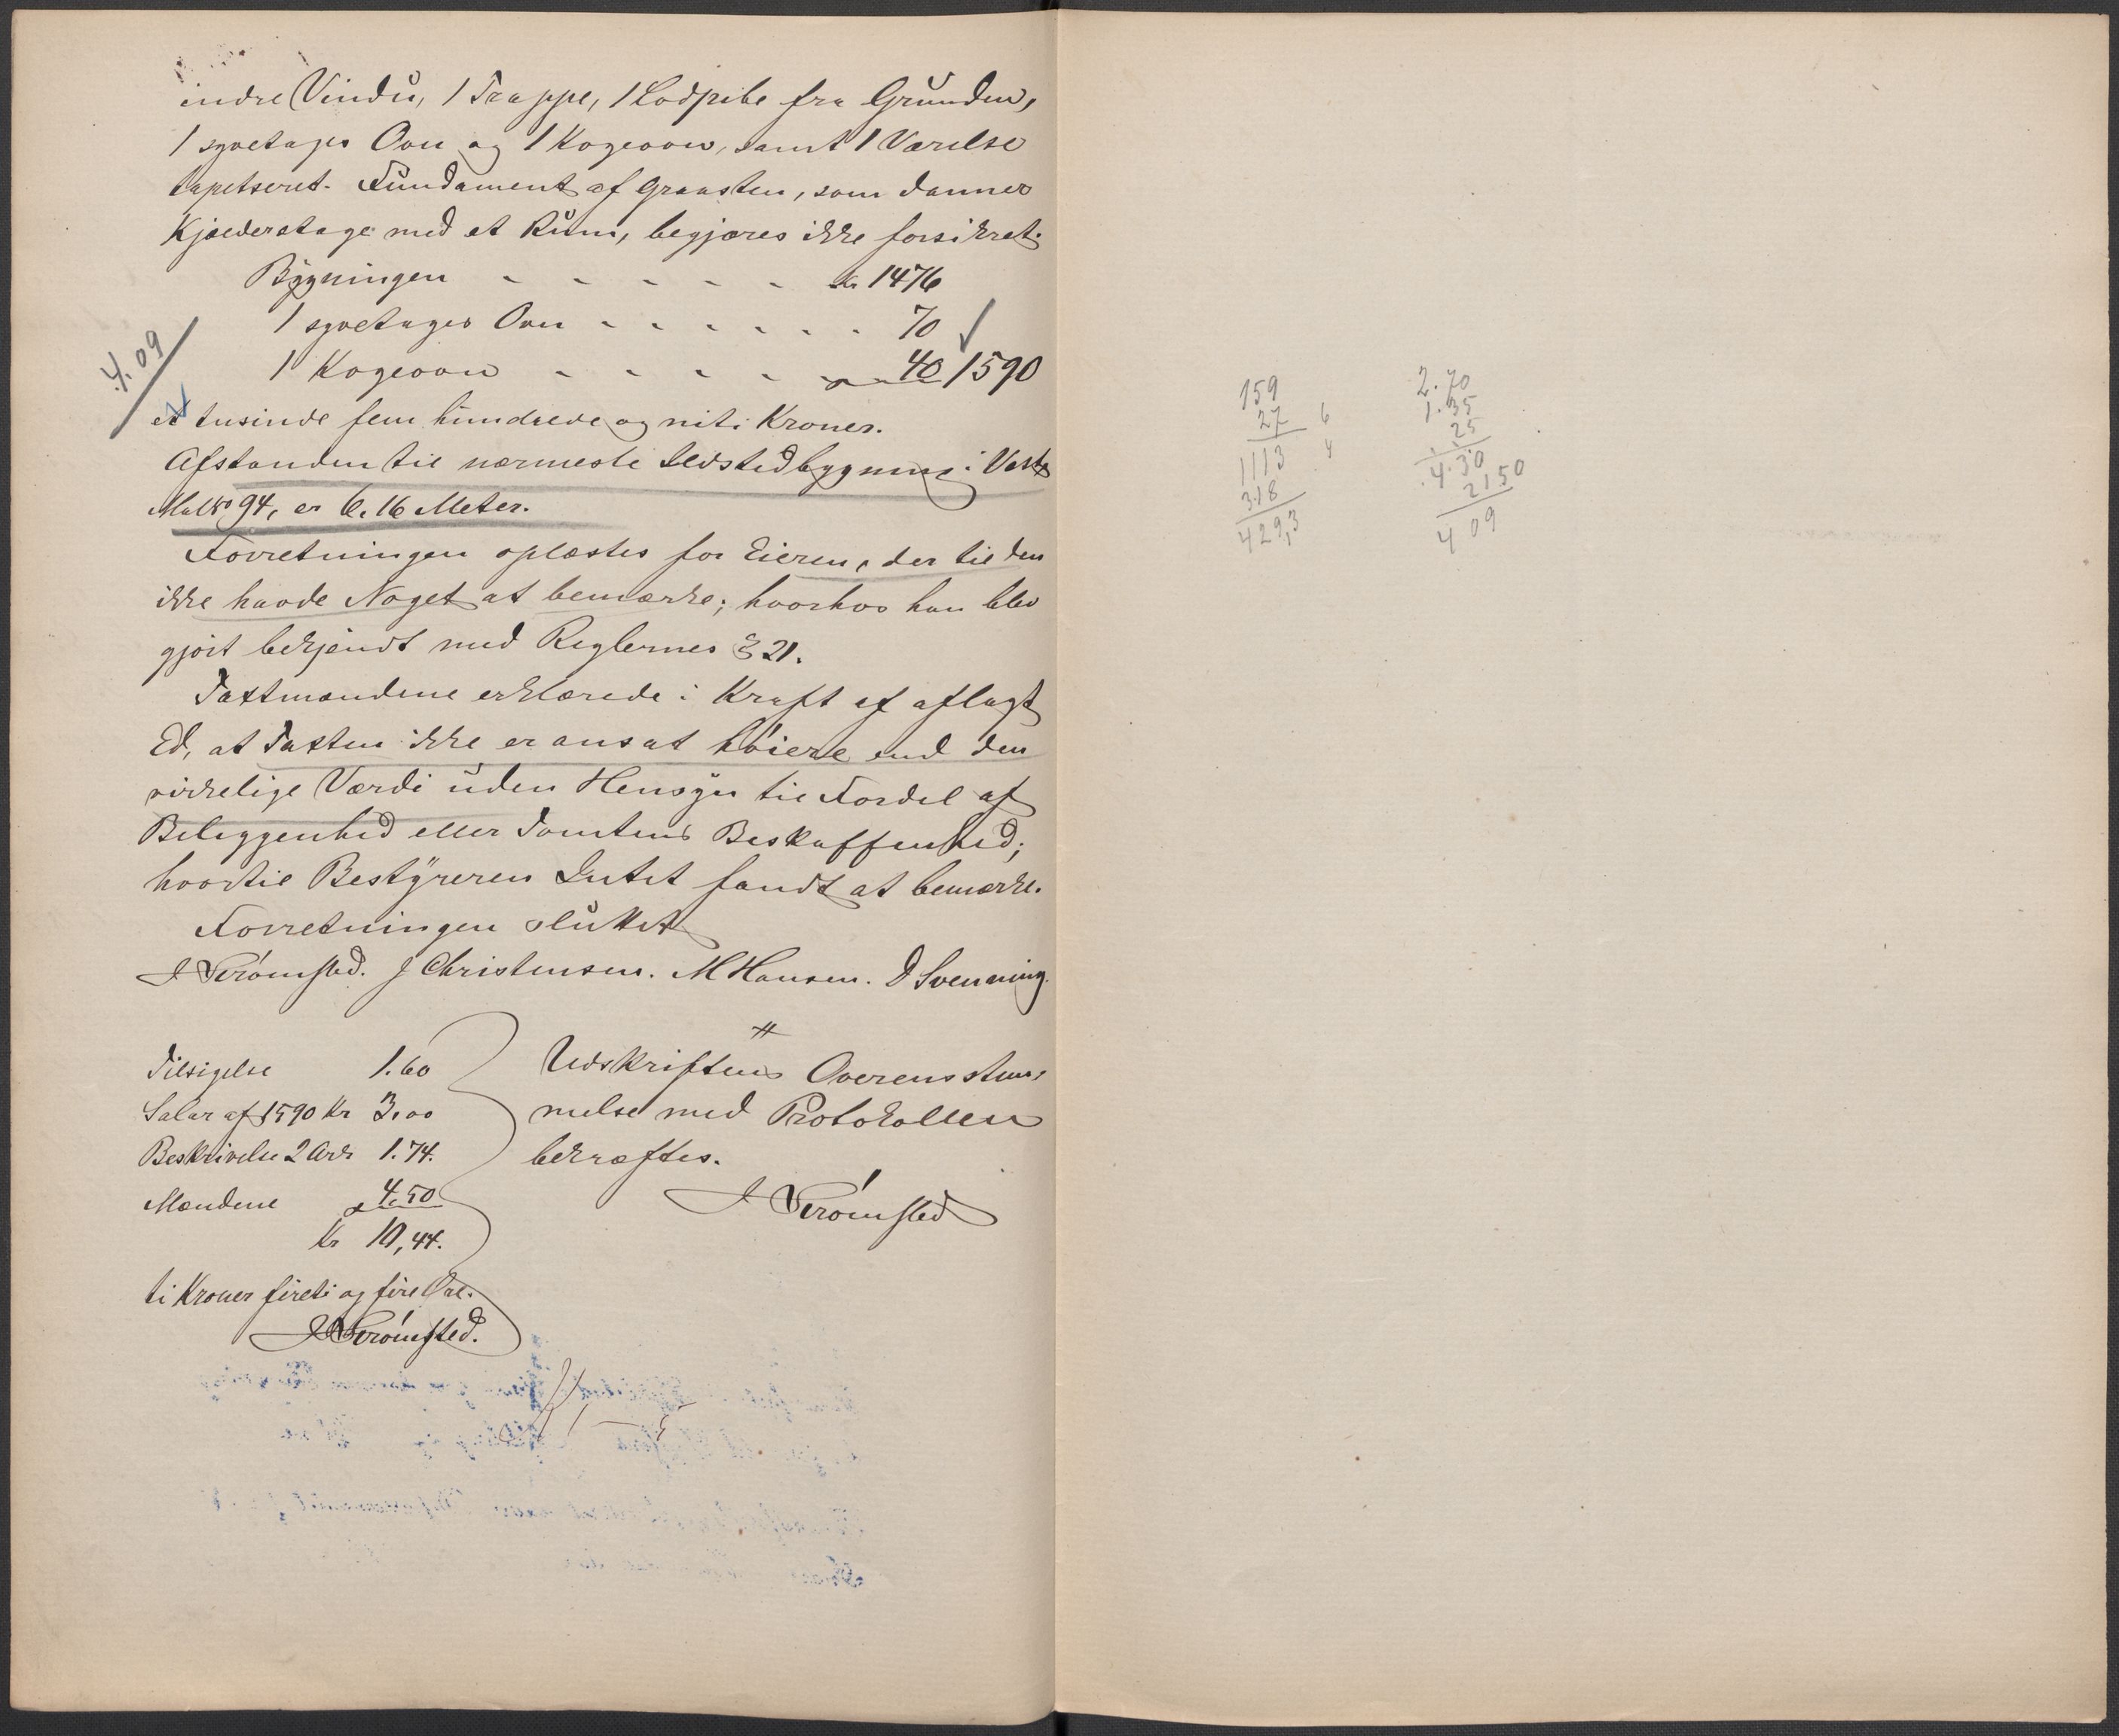 indre Vindu, 1 Trappe, 1 Lodpibe fra Grunden,
1 syvetages Ovn og 1 Kogeovn, samt 1 Værelse
tapetseret. Fundament af Graasten, som danner
Kjælderetage med et Rum, begjæres ikke forsikret.
Bygningen - - - - - kr 1476
1 syvetages Ovn - - - - - - 70
1 Kogeovn - - - - - 40 1590
4.09
et tusinde fem hundrede og niti Kroner.
Afstanden til nærmeste Ildstedbygning i Vest
Mat No 94, er 6.16 Meter.
Forretningen oplæstes for Eieren, der til den
ikke havde Noget at bemærke; hvorhos han blev
gjort bekjendt med Reglernes § 21.
Taxtmændene erklærede i Kraft af aflagt
Ed, at Taxten ikke er ansat høiere end den
virkelige Værdi uden Hensyn til Fordel af
Beliggenhed eller Tomtens Beskaffenhed;
hvortil Bestyreren Intet fandt at bemærke.
Forretningen sluttet
J Strømsted. J Christensen. M Hansen. D Svenning.
Tilsigelse 1.60
Salar af 1590 Kr 3.00
Beskrivelse 2 Ark 1.74.
Mændene 4.50
Kr 10,44.
ti Kroner fireti og fire Øre.
J Strømsted.
Udskriftens Overensstem-
melse med Protokollen
bekræftes.
J Strømsted
159
27
1113
318
429,3
6
4
2.70
1.35
25
4.30
2150
409